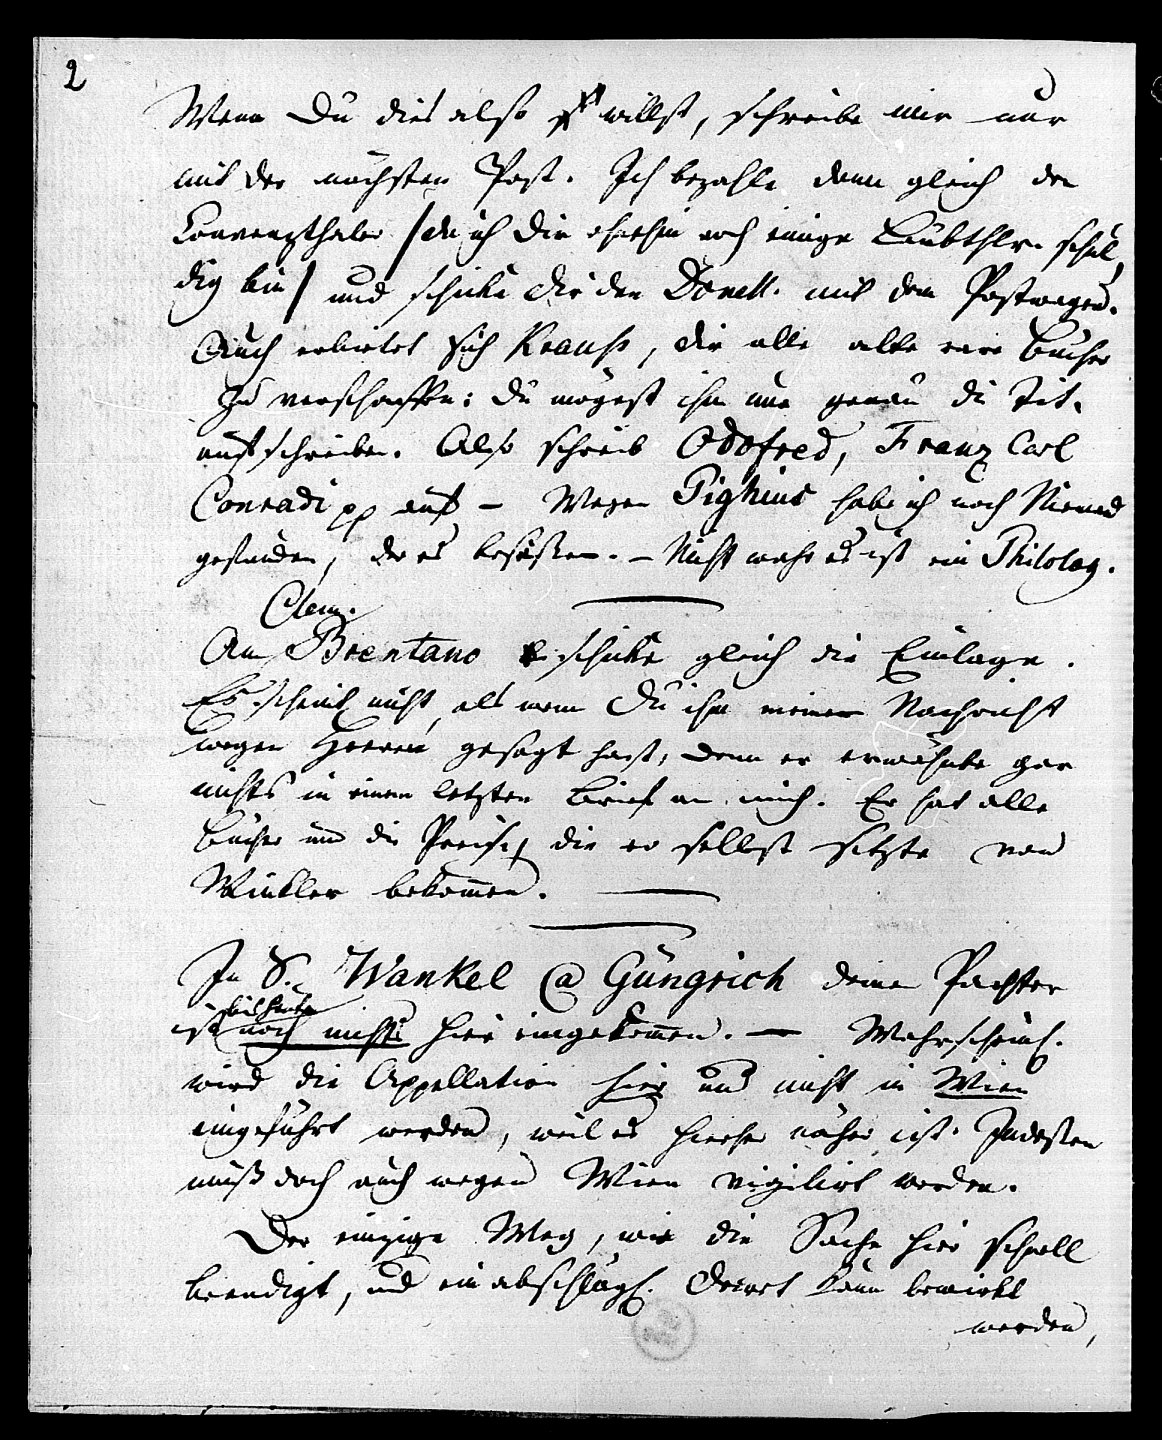 2
Wenn Du dies also willst, schreibe mir nur
mit der nächsten Post. Ich bezahle dann gleich den
Convenzthaler /da ich Dir ohnehin noch einige Laubthlr. schul,
dig bin/ und schicke Dir den Donell. mit dem Postwagen.
Auch erbietet sich Krauß, dir alle alte rare Bücher
zu verschaffen: Du mögest ihm nur genau die Tit.
aufschreiben. Also schreib Odofred, Franz Carl
Conradi pp auf – Wegen Pighius habe ich noch Niemand
gefunden, der es besäße. – Nicht wahr es ist ein Philolog.
Clem.
An Brentano schicke gleich die Einlage.
Es scheint nicht, als wenn Du ihm meine Nachricht
wegen Herrn gesagt hast, denn er erwähnte gar
nichts in einem letzten Brief an mich. Er hat alle
Bücher um die Preise, die er selbst setzte von
Winkler bekommen.
In S. Wankel @ Güngrich deine Pachter
bis heute
ist noch nichts hier eingekommen. — Wahrscheinl.
wird die Appellation hier und nicht in Wien
eingeführt werden, weil es hierher näher ist. Indessen
muß doch auch wegen Wien vigilirt werden.
Der einzige Weg, wie die Sache hier schnell
beendigt, und ein abschlägl. Decret kann bewirkt
werden,